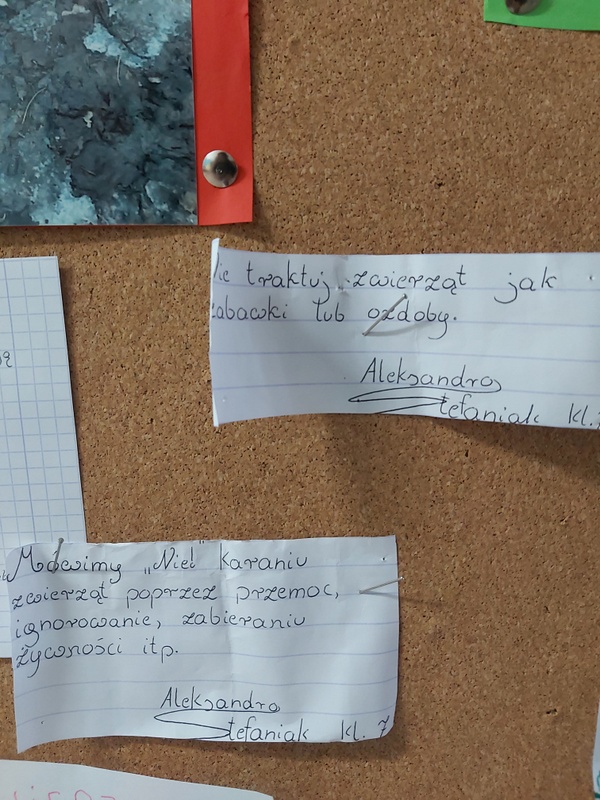 Nie traktuj zwierząt jak
zabawki lub ozdoby.
Aleksandra
Stefaniak kl. 7
Mówimy „Nie!” karaniu
zwierząt poprzez przemoc,
ignorowanie, zabieraniu
żywności itp.
Aleksandra
Stefaniak kl. 7